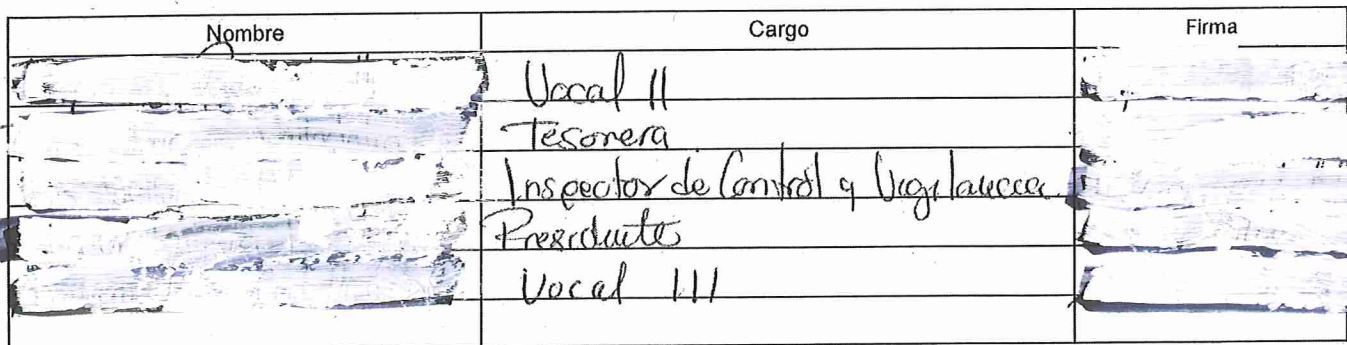 Nombre Cargo Firma
Vocal II
Tesorera
Inspector de Control y Vigilancia
Presidente
Vocal III